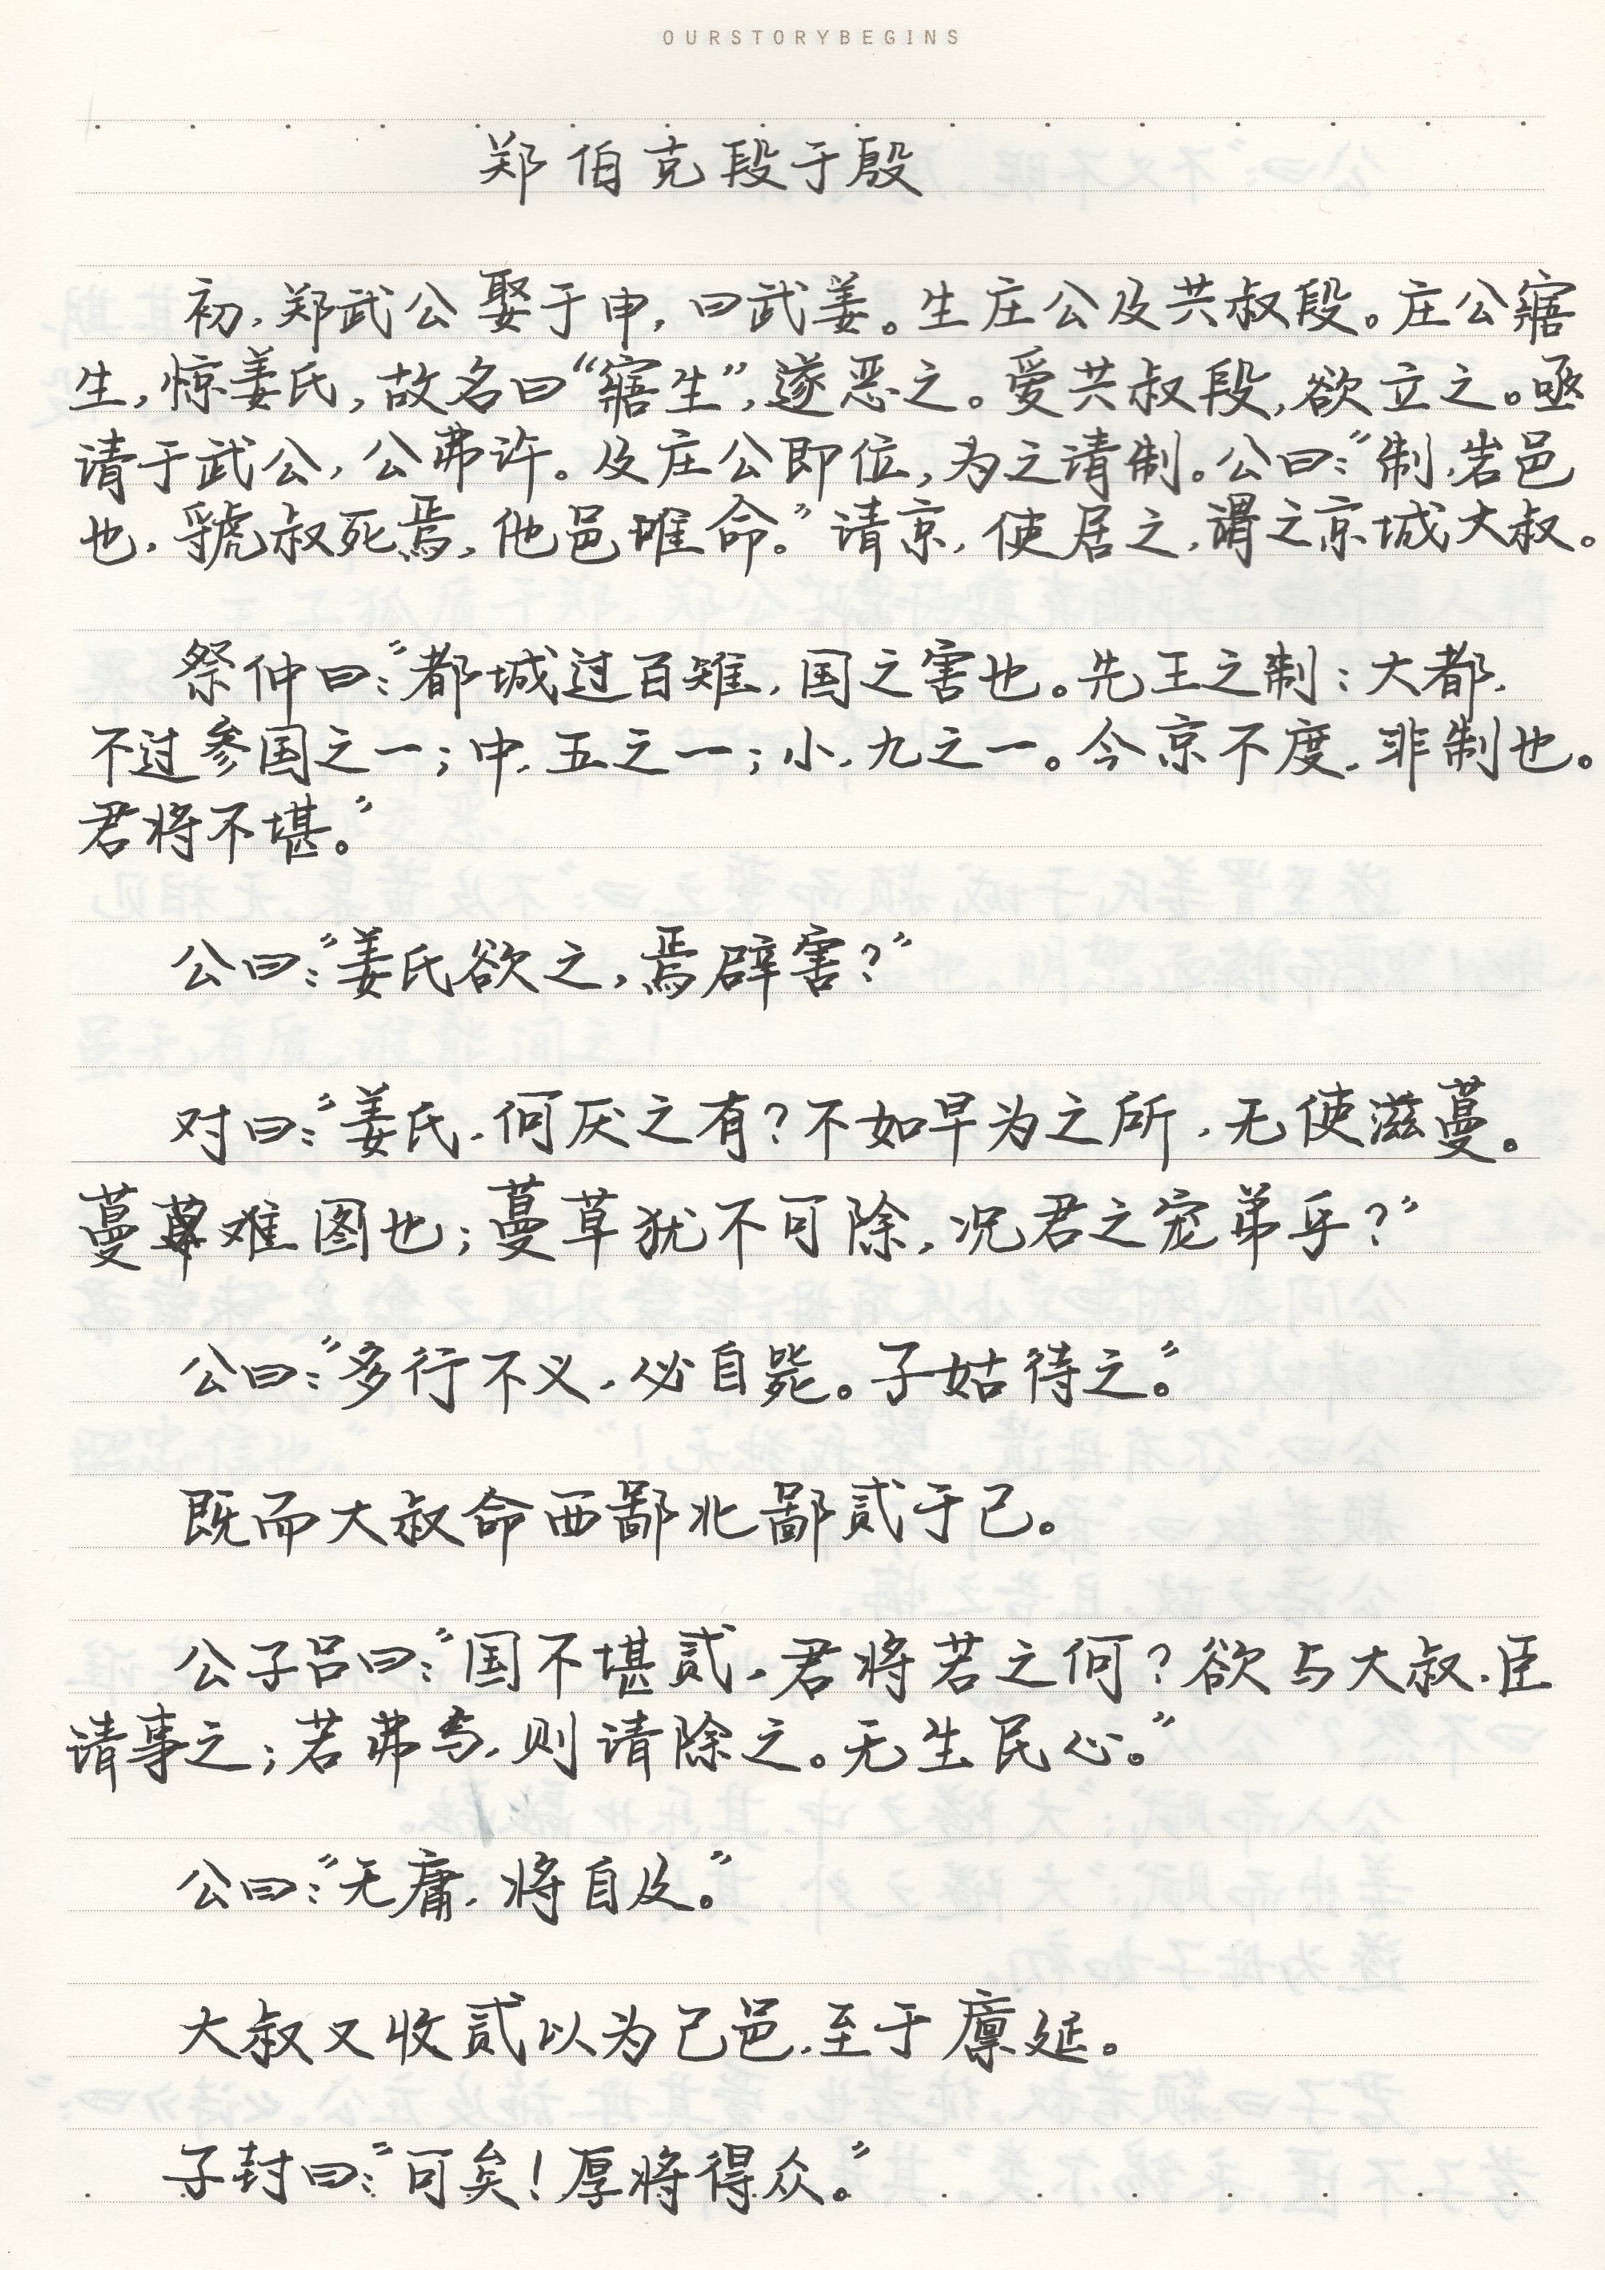 OURSTORYBEGINS
郑伯克段于殷
初,郑武公娶于申,曰武姜。生庄公及共叔段。庄公寤
生,惊姜氏,故名曰“寤生”,遂恶之。爱共叔段,欲立之。亟
请于武公,公弗许。及庄公即位,为之请制。公曰:“制,岩邑
也,虢叔死焉,他邑唯命。”请京,使居之,谓之京城大叔。
祭仲曰:“都城过百雉,国之害也。先王之制:大都,
不过参国之一;中,五之一;小,九之一。今京不度,非制也。
君将不堪。”
公曰:“姜氏欲之,焉辟害?”
对曰:“姜氏,何厌之有?不如早为之所,无使滋蔓。
蔓草难图也;蔓草犹不可除,况君之宠弟乎?”
公曰:“多行不义,必自毙。子姑待之。”
既而大叔命西鄙北鄙贰于己。
公子吕曰:“国不堪贰,君将若之何?欲与大叔,臣
请事之;若弗与,则请除之。无生民心。”
公曰:“无庸,将自及。”
大叔又收贰以为己邑,至于廪延。
子封曰:“可矣!厚将得众。”